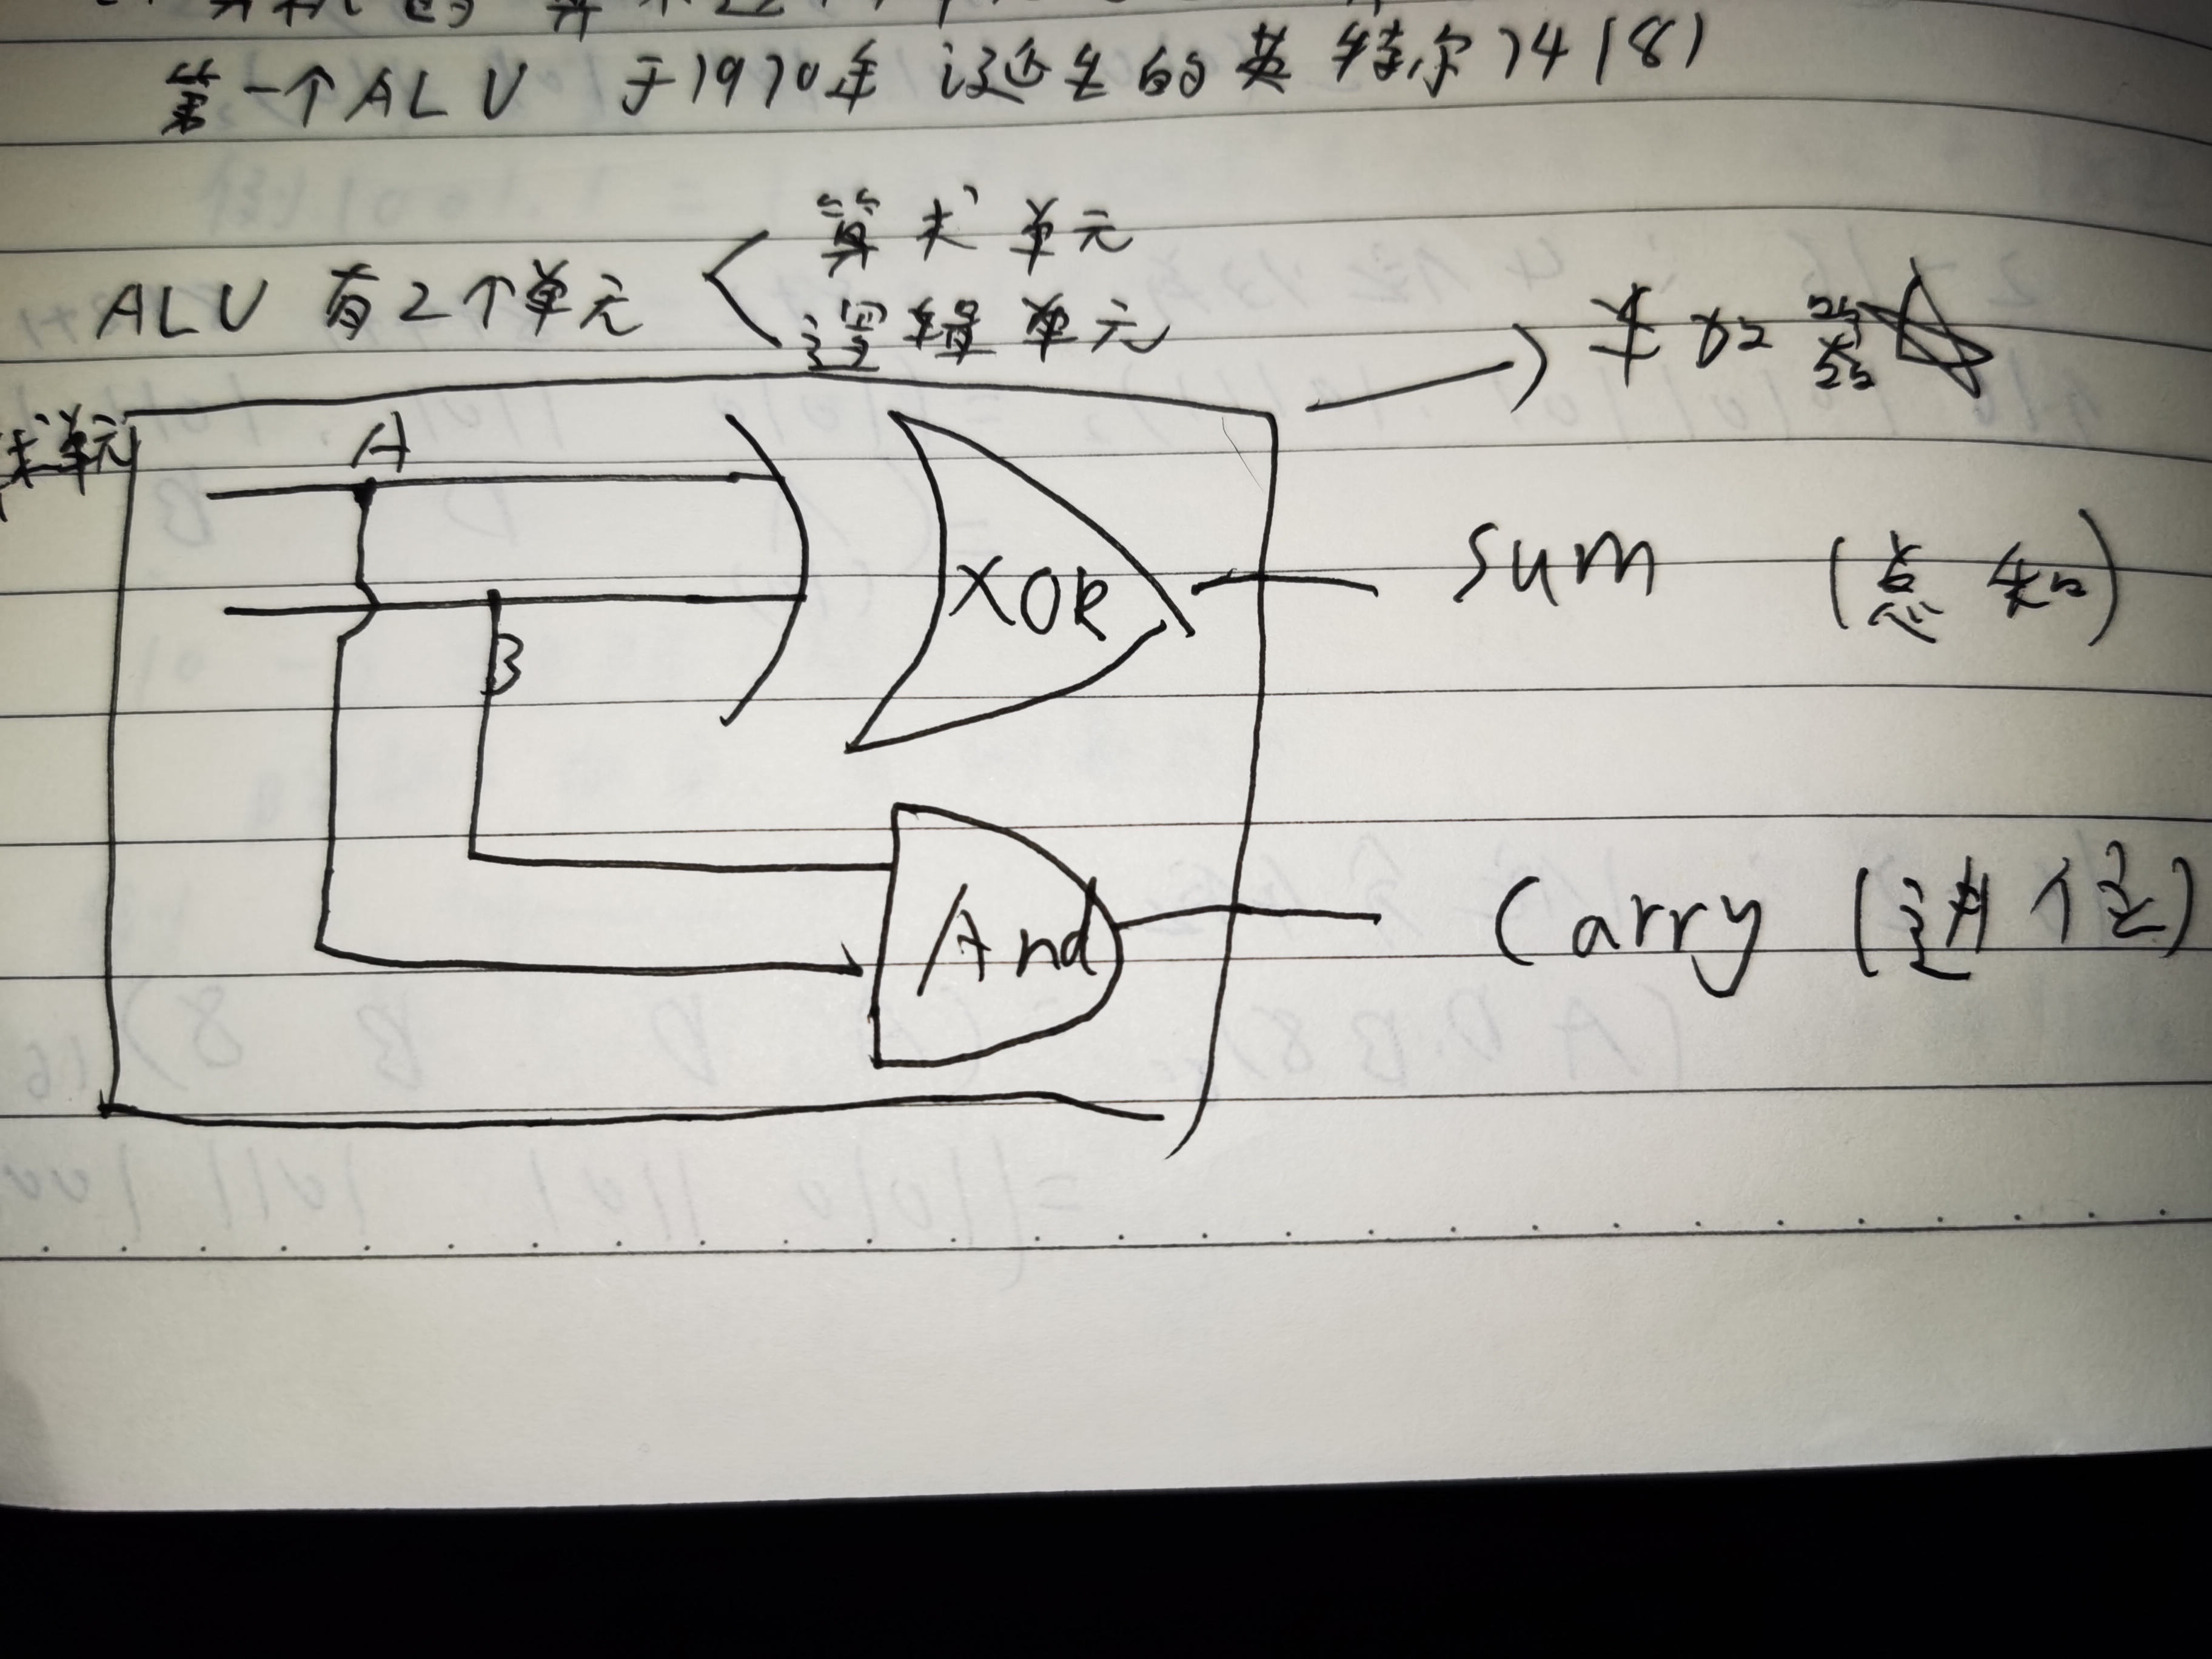 第一个ALU 于1970年 诞生的英特尔74181
算术单元
ALU 有2个单元
逻辑单元
半加器
术单元
A
XOR
sum (总和)
B
And
Carry (进位)